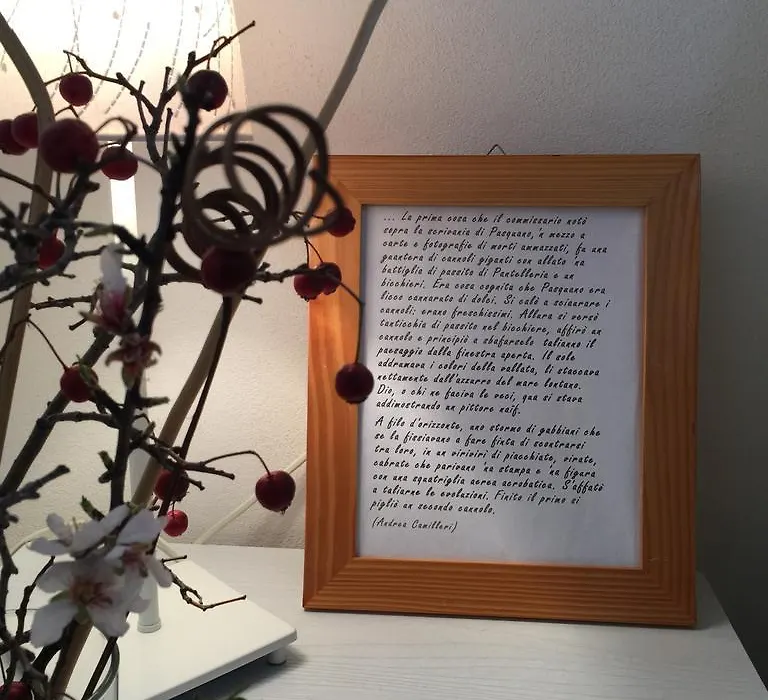 ... La prima cosa che il commissario notò
sopra la scrivania di Pasquano, 'n mezzo a
carte e fotografie di morti ammazzati, fu una
guantera di cannoli giganti con allato 'na
buttiglia di passito di Pantelleria e un
bicchieri. Era cosa cognita che Pasquano era
licco cannaruto di dolci. Si calò a sciaurare i
cannoli: erano freschissimi. Allura si versò
tanticchia di passito nel bicchiere, affirrò un
cannolo e principiò a sbafarselo talianno il
paesaggio dalla finestra aperta. Il sole
addrumava i colori della vallata, li staccava
nettamente dall'azzurro del mare lontano.
Dio, o chi ne faciva le veci, qua si stava
addimostrando un pittore naïf.
A filo d'orizzonte, uno stormo di gabbiani che
se la fissiavano a fare finta di scontrarsi
tra loro, in un viriviri di piacchiate, virate,
cabrate che parivano 'na stampa e 'na figura
con una squatriglia aerea acrobatica. S'affatò
a taliarne le evoluzioni. Finito il primo si
pigliò un secondo cannolo.
(Andrea Camilleri)